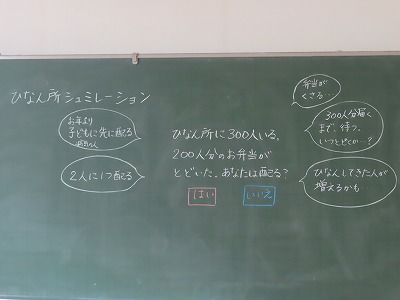 ひなん所シュミレーション
お年より
子どもに先に配る
2人に1つ配る
ひなん所に300人いる。
200人分のお弁当が
とどいた。あなたは配る?
はい
いいえ
弁当が
くさる…
300人分届く
まで、待つ。
いつとどくか…?
ひなんしてきた人が
増えるかも